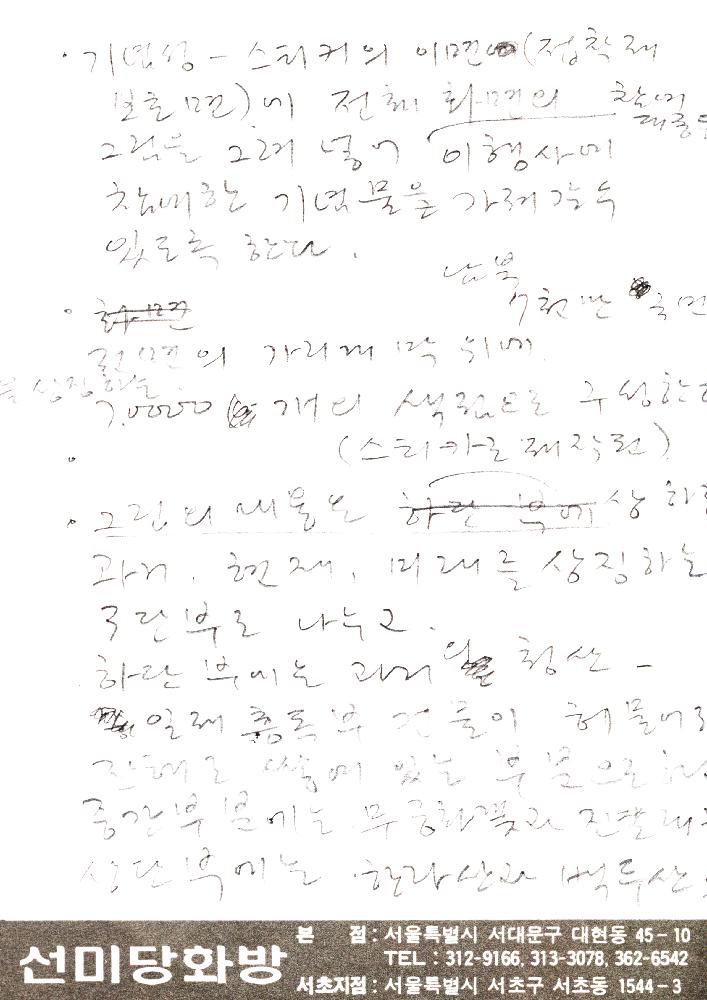 · 기념성 - 스티커의 이면에 (접착제
보호면)에 전체 화면의 참여
대중
그림을 그려 넣어 이 행사에
참여한 기념물을 가져갈 수
있도록 한다.
남북
7천만 국민
전면의 가리개 막 위에
을 상징하는
7.0000 개의 색점으로 구성한다
(스티카로 제작된)
· 그림의 내용은 하단부에 상하
과거, 현재, 미래를 상징하는
3단부로 나누고.
하단부에는 과거의 청산 -
일제 총독부 건물이 허물어
잔해로 쌓여 있는 부분으로
중간부분에는 무궁화꽃과 진달래
상단부에는 한라산과 백두산
선미당화방
본 점 : 서울특별시 서대문구 대현동 45 - 10
TEL : 312-9166, 313-3078, 362-6542
서초지점 : 서울특별시 서초구 서초동 1544 - 3